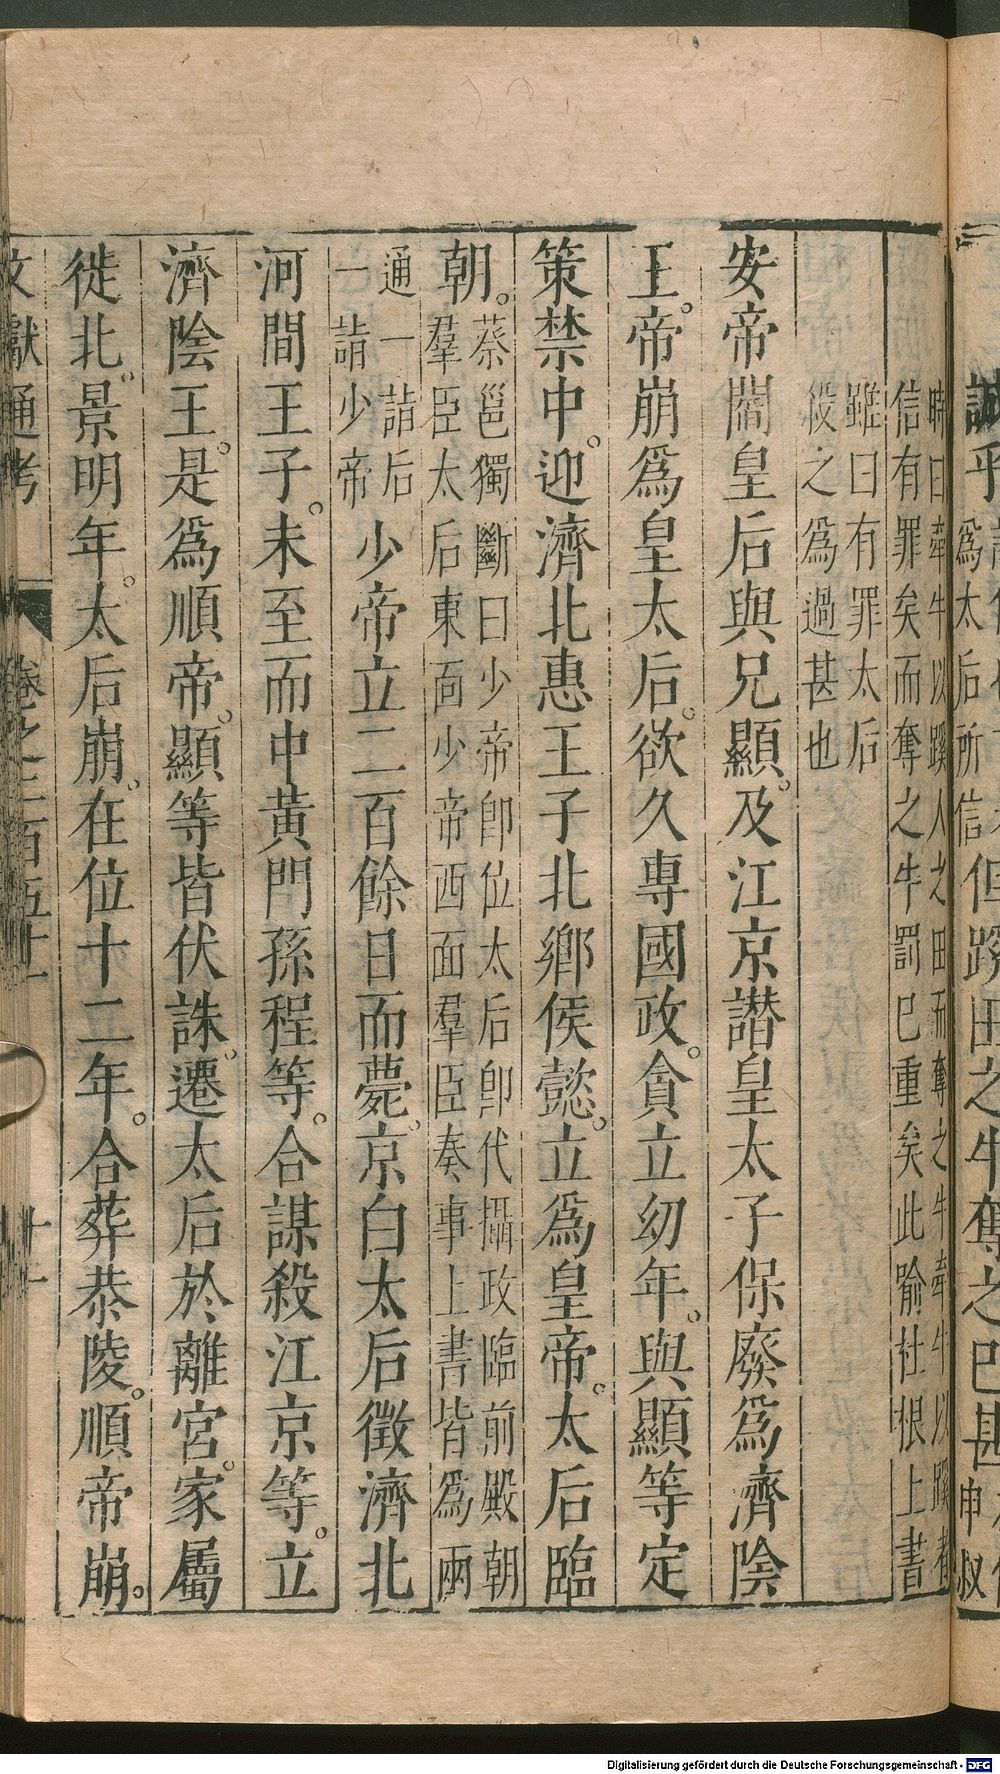 誠乎
為太后所信
但蹊田之牛奪之已甚
申叔
時曰牽牛以蹊人之田而奪之牛牽牛以蹊者
信有罪矣而奪之牛罰已重矣此喻杜根上書
雖曰有罪太后
殺之為過甚也
安帝閻皇后與兄顯。及江京譖皇太子保廢為濟陰
王。帝崩為皇太后。欲久專國政。貪立幼年。與顯等定
策禁中。迎濟北惠王子北鄉侯懿。立為皇帝。太后臨
朝。
蔡邕獨斷曰少帝即位太后即代攝政臨前殿朝
羣臣太后東面少帝西面羣臣奏事上書皆為兩
通一詣后
一詣少帝
少帝立二百餘日而薨。京白太后徵濟北
河間王子。未至而中黃門孫程等。合謀殺江京等。立
濟陰王。是為順帝。顯等皆伏誅。遷太后於離宮。家屬
徙北景。明年。太后崩。在位十二年。合葬恭陵。順帝崩。
文獻通考
卷之二百五十一
十一
Digitalisierung gefördert durch die Deutsche Forschungsgemeinschaft - DFG